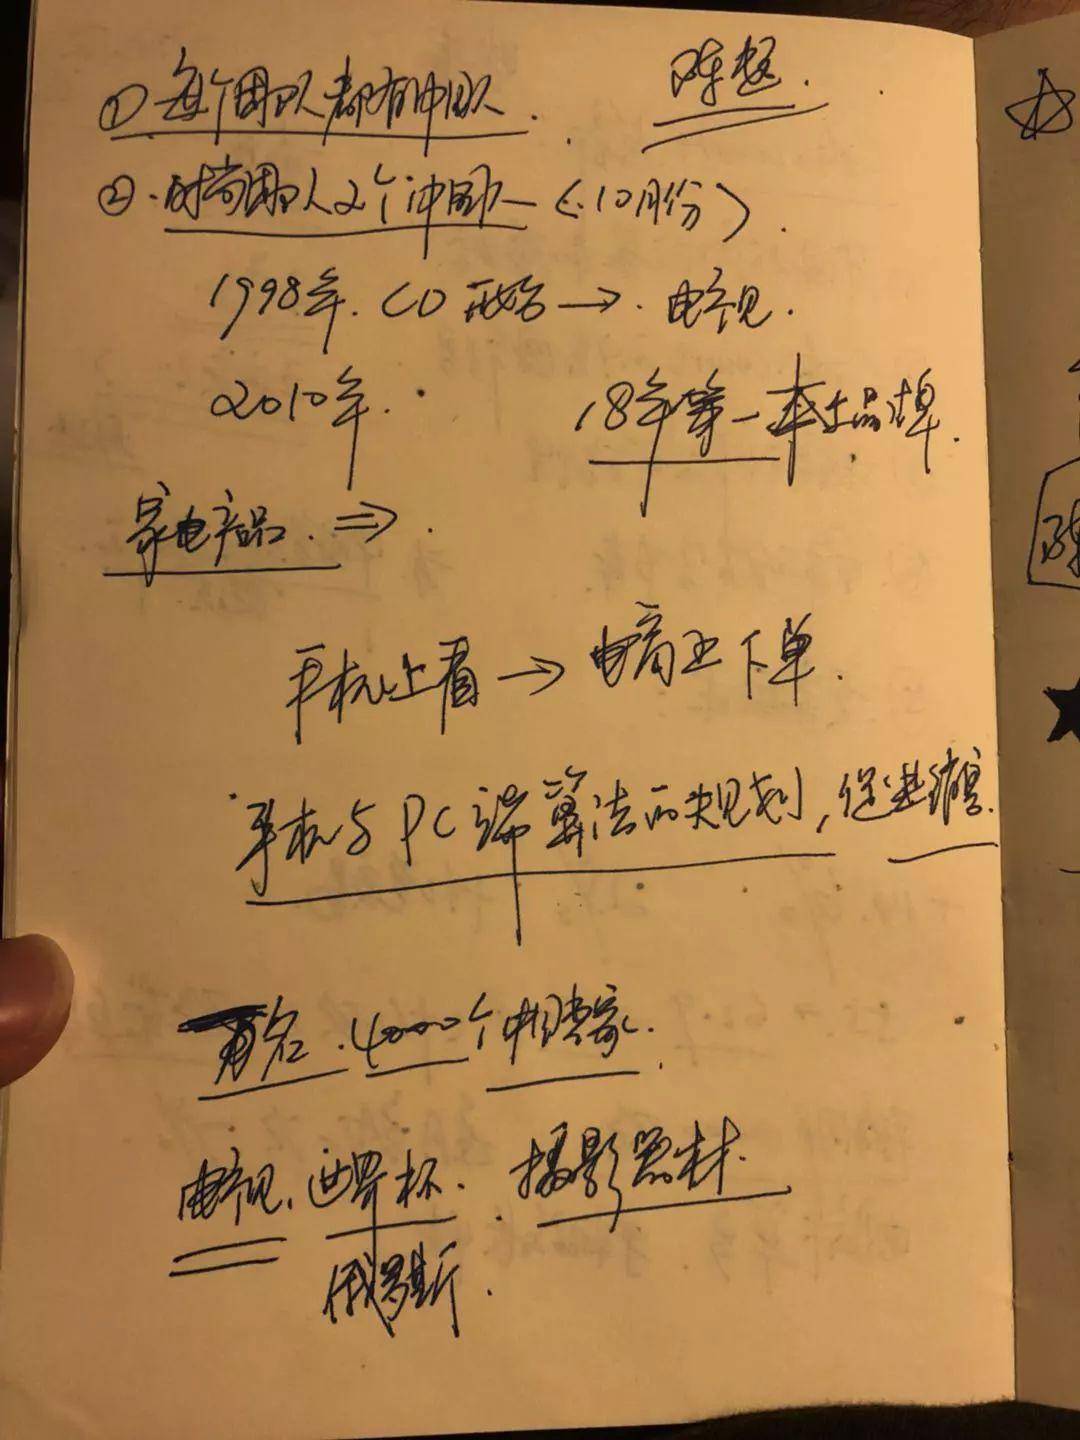 ①每个团队都有中国人. 陈超.
②.时尚团队人2个中国人(.10月份).
1998年. CD 开始→. 电视.
2010年. 18年第一本土品牌.
家电产品. ⇒.
手机上看→电商上下单.
手机与PC端算法的规划, 促进
4000个中国卖家.
电视, 世界杯. 摄影器材.
俄罗斯.